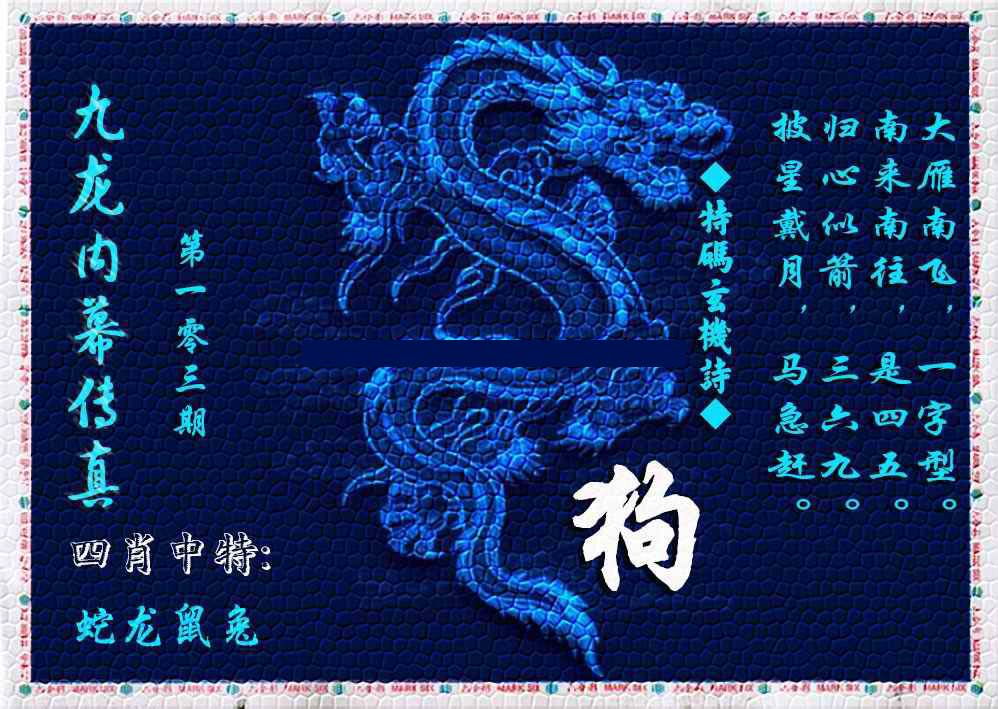 九龙内幕传真
第一零三期
四肖中特:
蛇龙鼠兔
狗
◆特碼玄機詩◆
大雁南飞，一字型。
南来南往，是四五。
归心似箭，三六九。
披星戴月，马急赶。
六合彩 MARK SIX